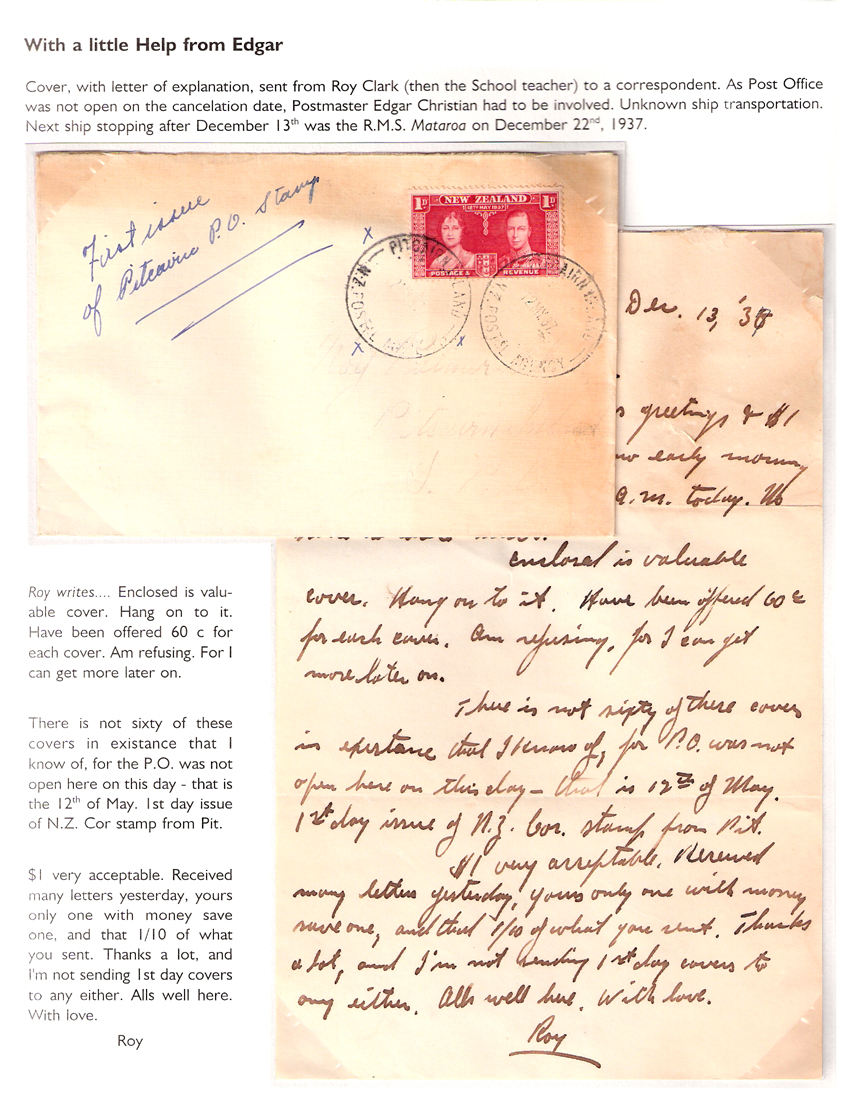 With a little Help from Edgar
Cover, with letter of explanation, sent from Roy Clark (then the School teacher) to a correspondent. As Post Office
was not open on the cancelation date, Postmaster Edgar Christian had to be involved. Unknown ship transportation.
Next ship stopping after December 13th was the R.M.S. Mataroa on December 22nd, 1937.
First issue
of Pitcairn P.O. Stamp
1D NEW ZEALAND 1D
12TH MAY 1937
POSTAGE & REVENUE
PITCAIRN ISLAND
N.Z. POSTAL AGENCY
PITCAIRN ISLAND
N.Z. POSTAL AGENCY
x
x
x
Pitcairn
Dec. 13, '37
greetings & $1
early morning
a.m. today. No
Enclosed is valuable
cover. Hang on to it. Have been offered 60 c
for each cover. Am refusing, for I can get
more later on.
There is not sixty of these covers
in existance that I know of, for P.O. was not
open here on this day - that is 12th of May.
1st day issue of N.Z. Cor. stamp from Pit.
$1 very acceptable. Received
many letters yesterday, yours only one with money
save one, and that 1/10 of what you sent. Thanks
a lot, and I'm not sending 1st day covers to
any either. Alls well here. With love.
Roy
Roy writes.... Enclosed is valu-
able cover. Hang on to it.
Have been offered 60 c for
each cover. Am refusing. For I
can get more later on.
There is not sixty of these
covers in existance that I
know of, for the P.O. was not
open here on this day - that is
the 12th of May. 1st day issue
of N.Z. Cor stamp from Pit.
$1 very acceptable. Received
many letters yesterday, yours
only one with money save
one, and that 1/10 of what
you sent. Thanks a lot, and
I'm not sending 1st day covers
to any either. Alls well here.
With love.
Roy